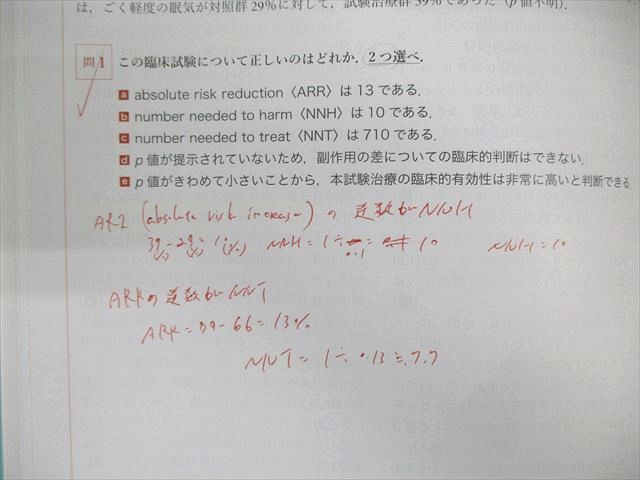 は,ごく軽度の眠気が対照群29%に対して,試験治療群39%であった(p値不明).
問1 この臨床試験について正しいのはどれか.2つ選べ.
a absolute risk reduction〈ARR〉は13である.
b number needed to harm〈NNH〉は10である.
c number needed to treat〈NNT〉は710である.
d p値が提示されていないため,副作用の差についての臨床的判断はできない.
e p値がきわめて小さいことから,本試験治療の臨床的有効性は非常に高いと判断できる
(absolute risk increase)の逆数がNNH
NNH = 1÷0.1 10 NNH=10
ARRの逆数がNNT
ARR = 79-66=13%
NNT = 1÷0.13≒7.7